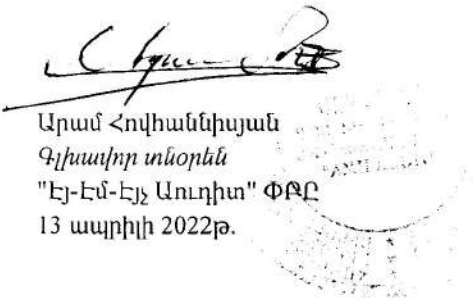 Արամ Հովհաննիսյան
Գլխավոր տնօրեն
"Էյ-Էմ-Էյչ Աուդիտ" ՓԲԸ
13 ապրիլի 2022թ.